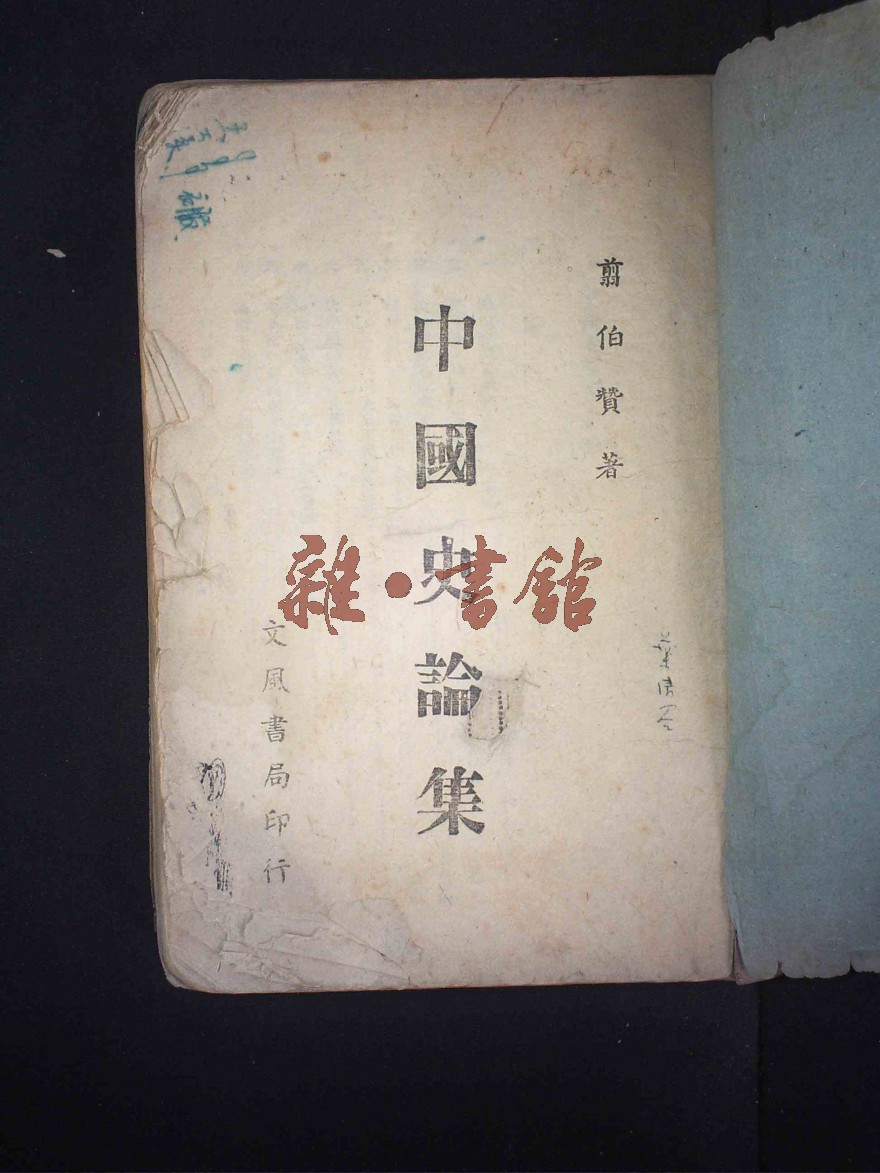 翦伯贊著
中國史論集
文風書局印行
雜·書館